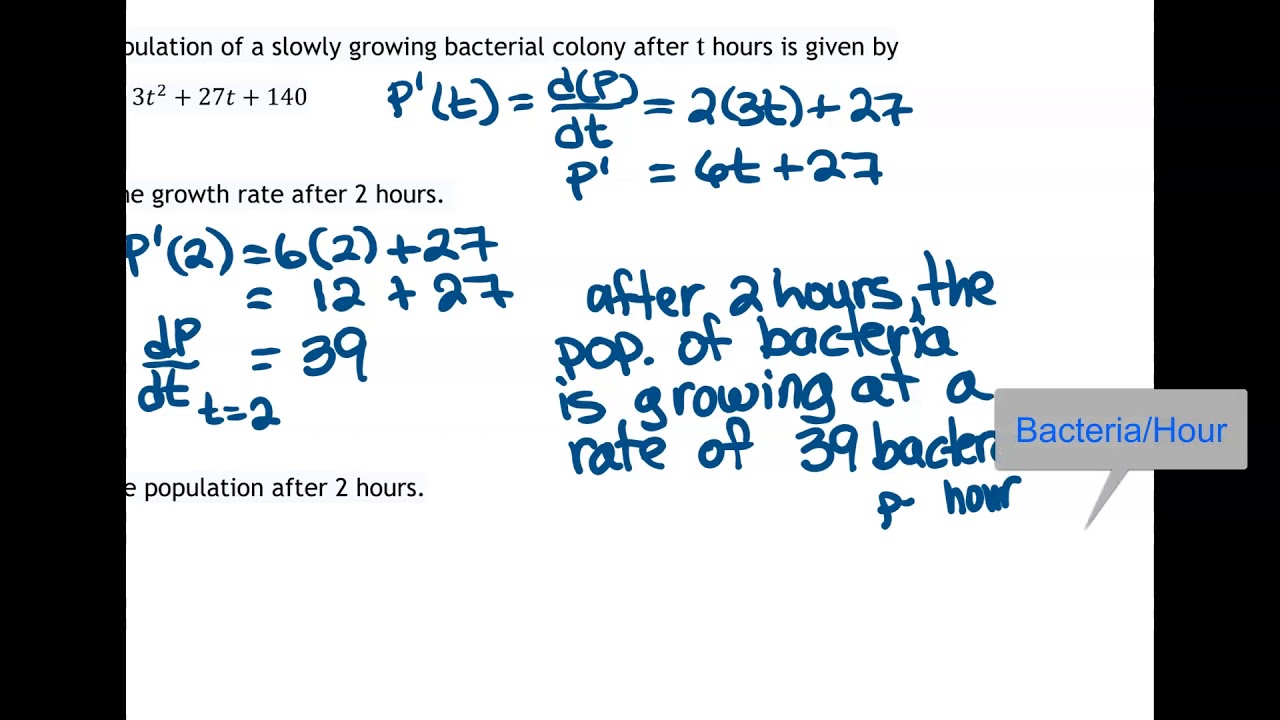 pulation of a slowly growing bacterial colony after t hours is given by
3t² + 27t + 140
P'(t) = d(P)/dt = 2(3t) + 27
P' = 6t + 27
e growth rate after 2 hours.
P'(2) = 6(2) + 27
= 12 + 27
dP/dt t=2 = 39
after 2 hours, the
pop. of bacteria
is growing at a
rate of 39 bacteri
p hour
Bacteria/Hour
e population after 2 hours.